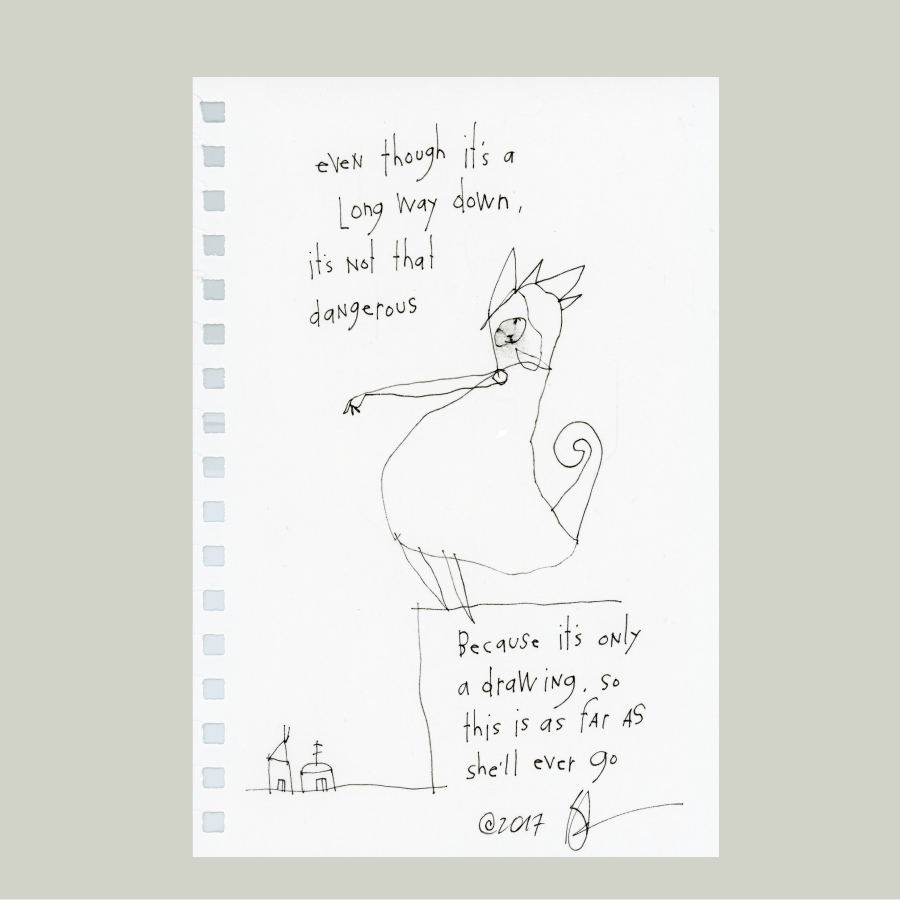 even though it's a
Long way down,
it's not that
dangerous
Because it's only
a drawing, so
this is as far AS
she'll ever go
©2017